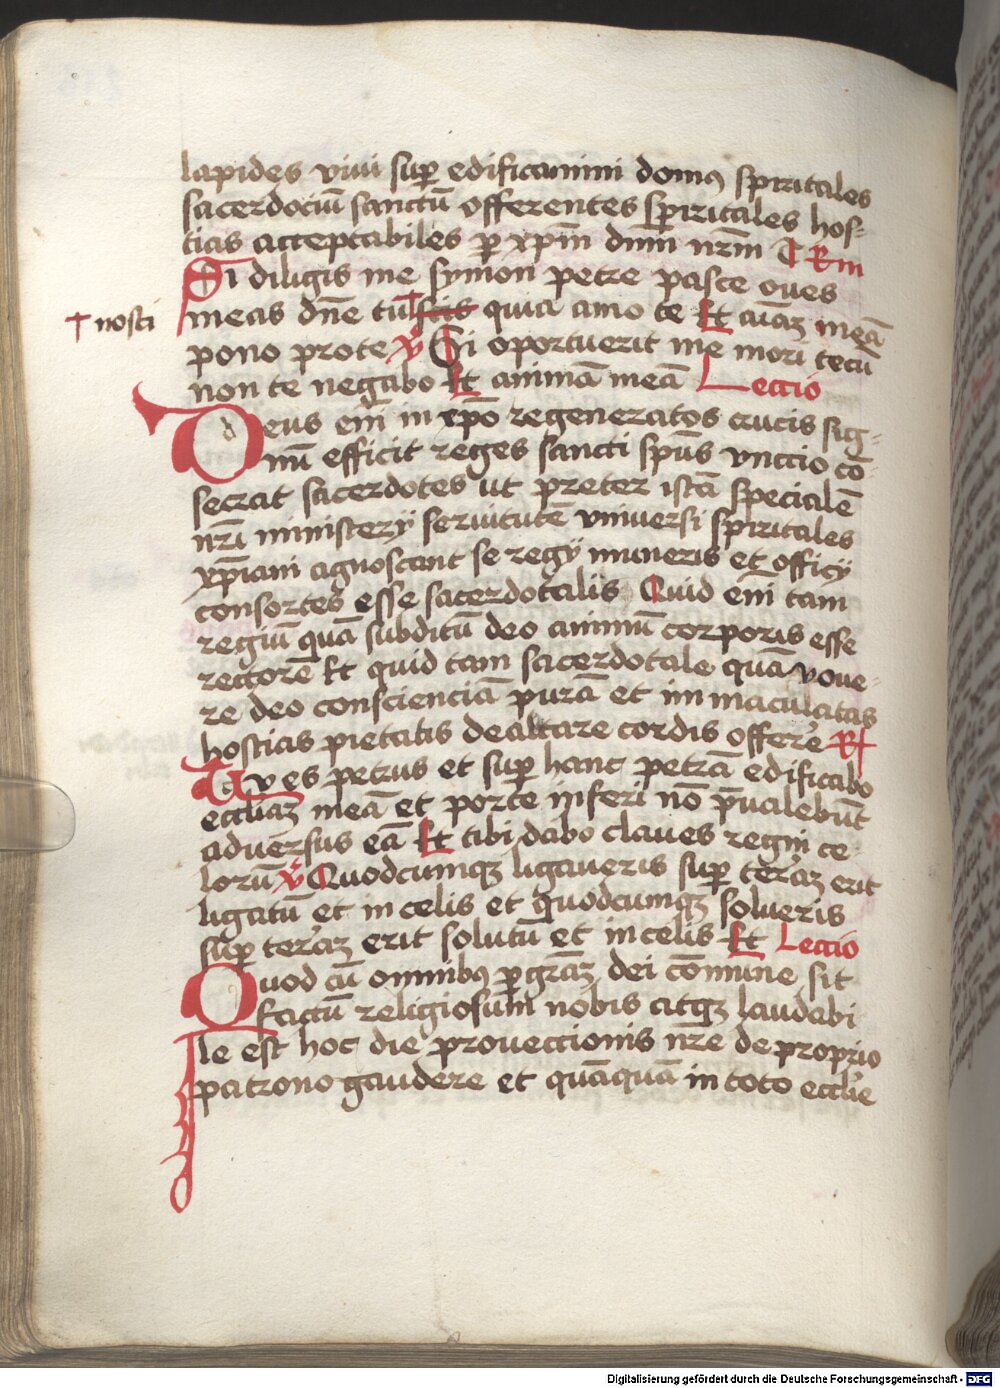 lapides viui sup̱ edificamini domꝯ spiritales
sacerdociū sanctū offerentes spiritales hos-
tias acceptabiles p̱ xp̄m dnm̄ nrm̄ Rm
Si diligis me symon petre pasce oues
† nosti
meas dn̄e tu † scis quia amo te Et aīaʒ meā
pono prote ꝟ Si oportuerit me mori tecū
non te negabo Et animā meā Lectio
Deus em̄ in xp̄o regeneratos crucis sig-
nū efficit reges sancti spūs vnctio cō-
secrat sacerdotes ut preter istā specialē
nrī ministerÿ seruitutē vniuersi spiritales
xp̄iani agnoscant se regÿ muneris et officÿ
consortes esse sacerdotalis Quid em̄ tam
regiū quā subditū deo animū corporis esse
rectorē Et quid tam sacerdotale quā voue-
re deo conscienciā purā et immaculatas
hostias pietatis de altare cordis offerre R
Tu es petrus et sup̱ hanc petrā edificabo
eccliaʒ meā et porte inferi nō p̄ualebūt
aduersus eā Et tibi dabo claues regni ce-
lorū ꝟ Quodcumqʒ ligaueris sup̱ terraʒ erit
ligatū et in celis et quodcumqʒ solueris
sup̱ terraʒ erit solutū et in celis Et Lectio
Quod cū omnibꝯ p̱ graʒ dei cōmune sit
factū religiosum nobis atqʒ laudabi-
le est hoc die prouectionis nrē de proprio
patrono gaudere et quāquā in toto ecclie
Digitalisierung gefördert durch die Deutsche Forschungsgemeinschaft - DFG